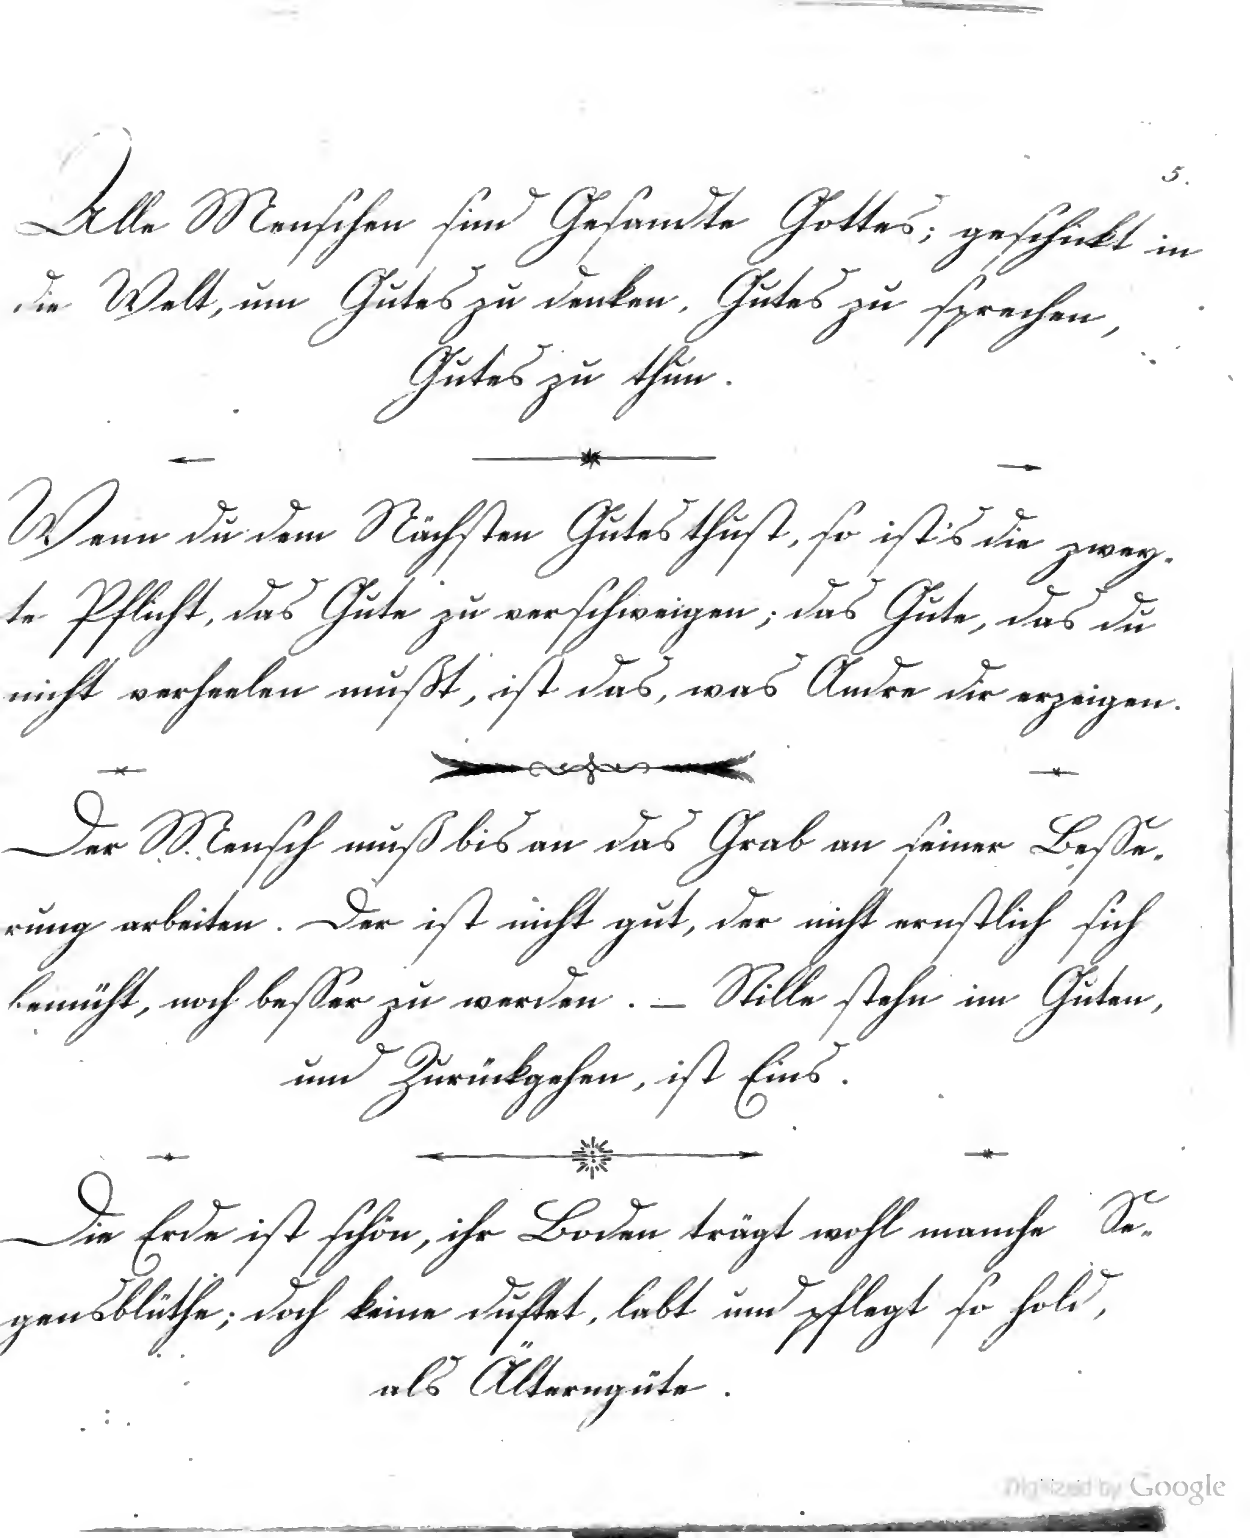 5.
Alle Menschen sind Gesandte Gottes; geschickt in
die Welt, um Gutes zu denken, Gutes zu sprechen,
Gutes zu thun.
Wenn du dem Nächsten Gutes thust, so ist's die zwey-
te Pflicht, das Gute zu verschweigen; das Gute, das du
nicht verheelen mußt, ist das, was Andre dir erzeigen.
Der Mensch muß bis an das Grab an seiner Besse-
rung arbeiten. Der ist nicht gut, der nicht ernstlich sich
bemüht, noch besser zu werden. – Stille stehn im Guten,
und Zurückgehen, ist Eins.
Die Erde ist schön, ihr Boden trägt wohl manche Se-
gensblüthe; doch keine duftet, labt und pflegt so hold,
als Älterngüte.
Digitized by Google